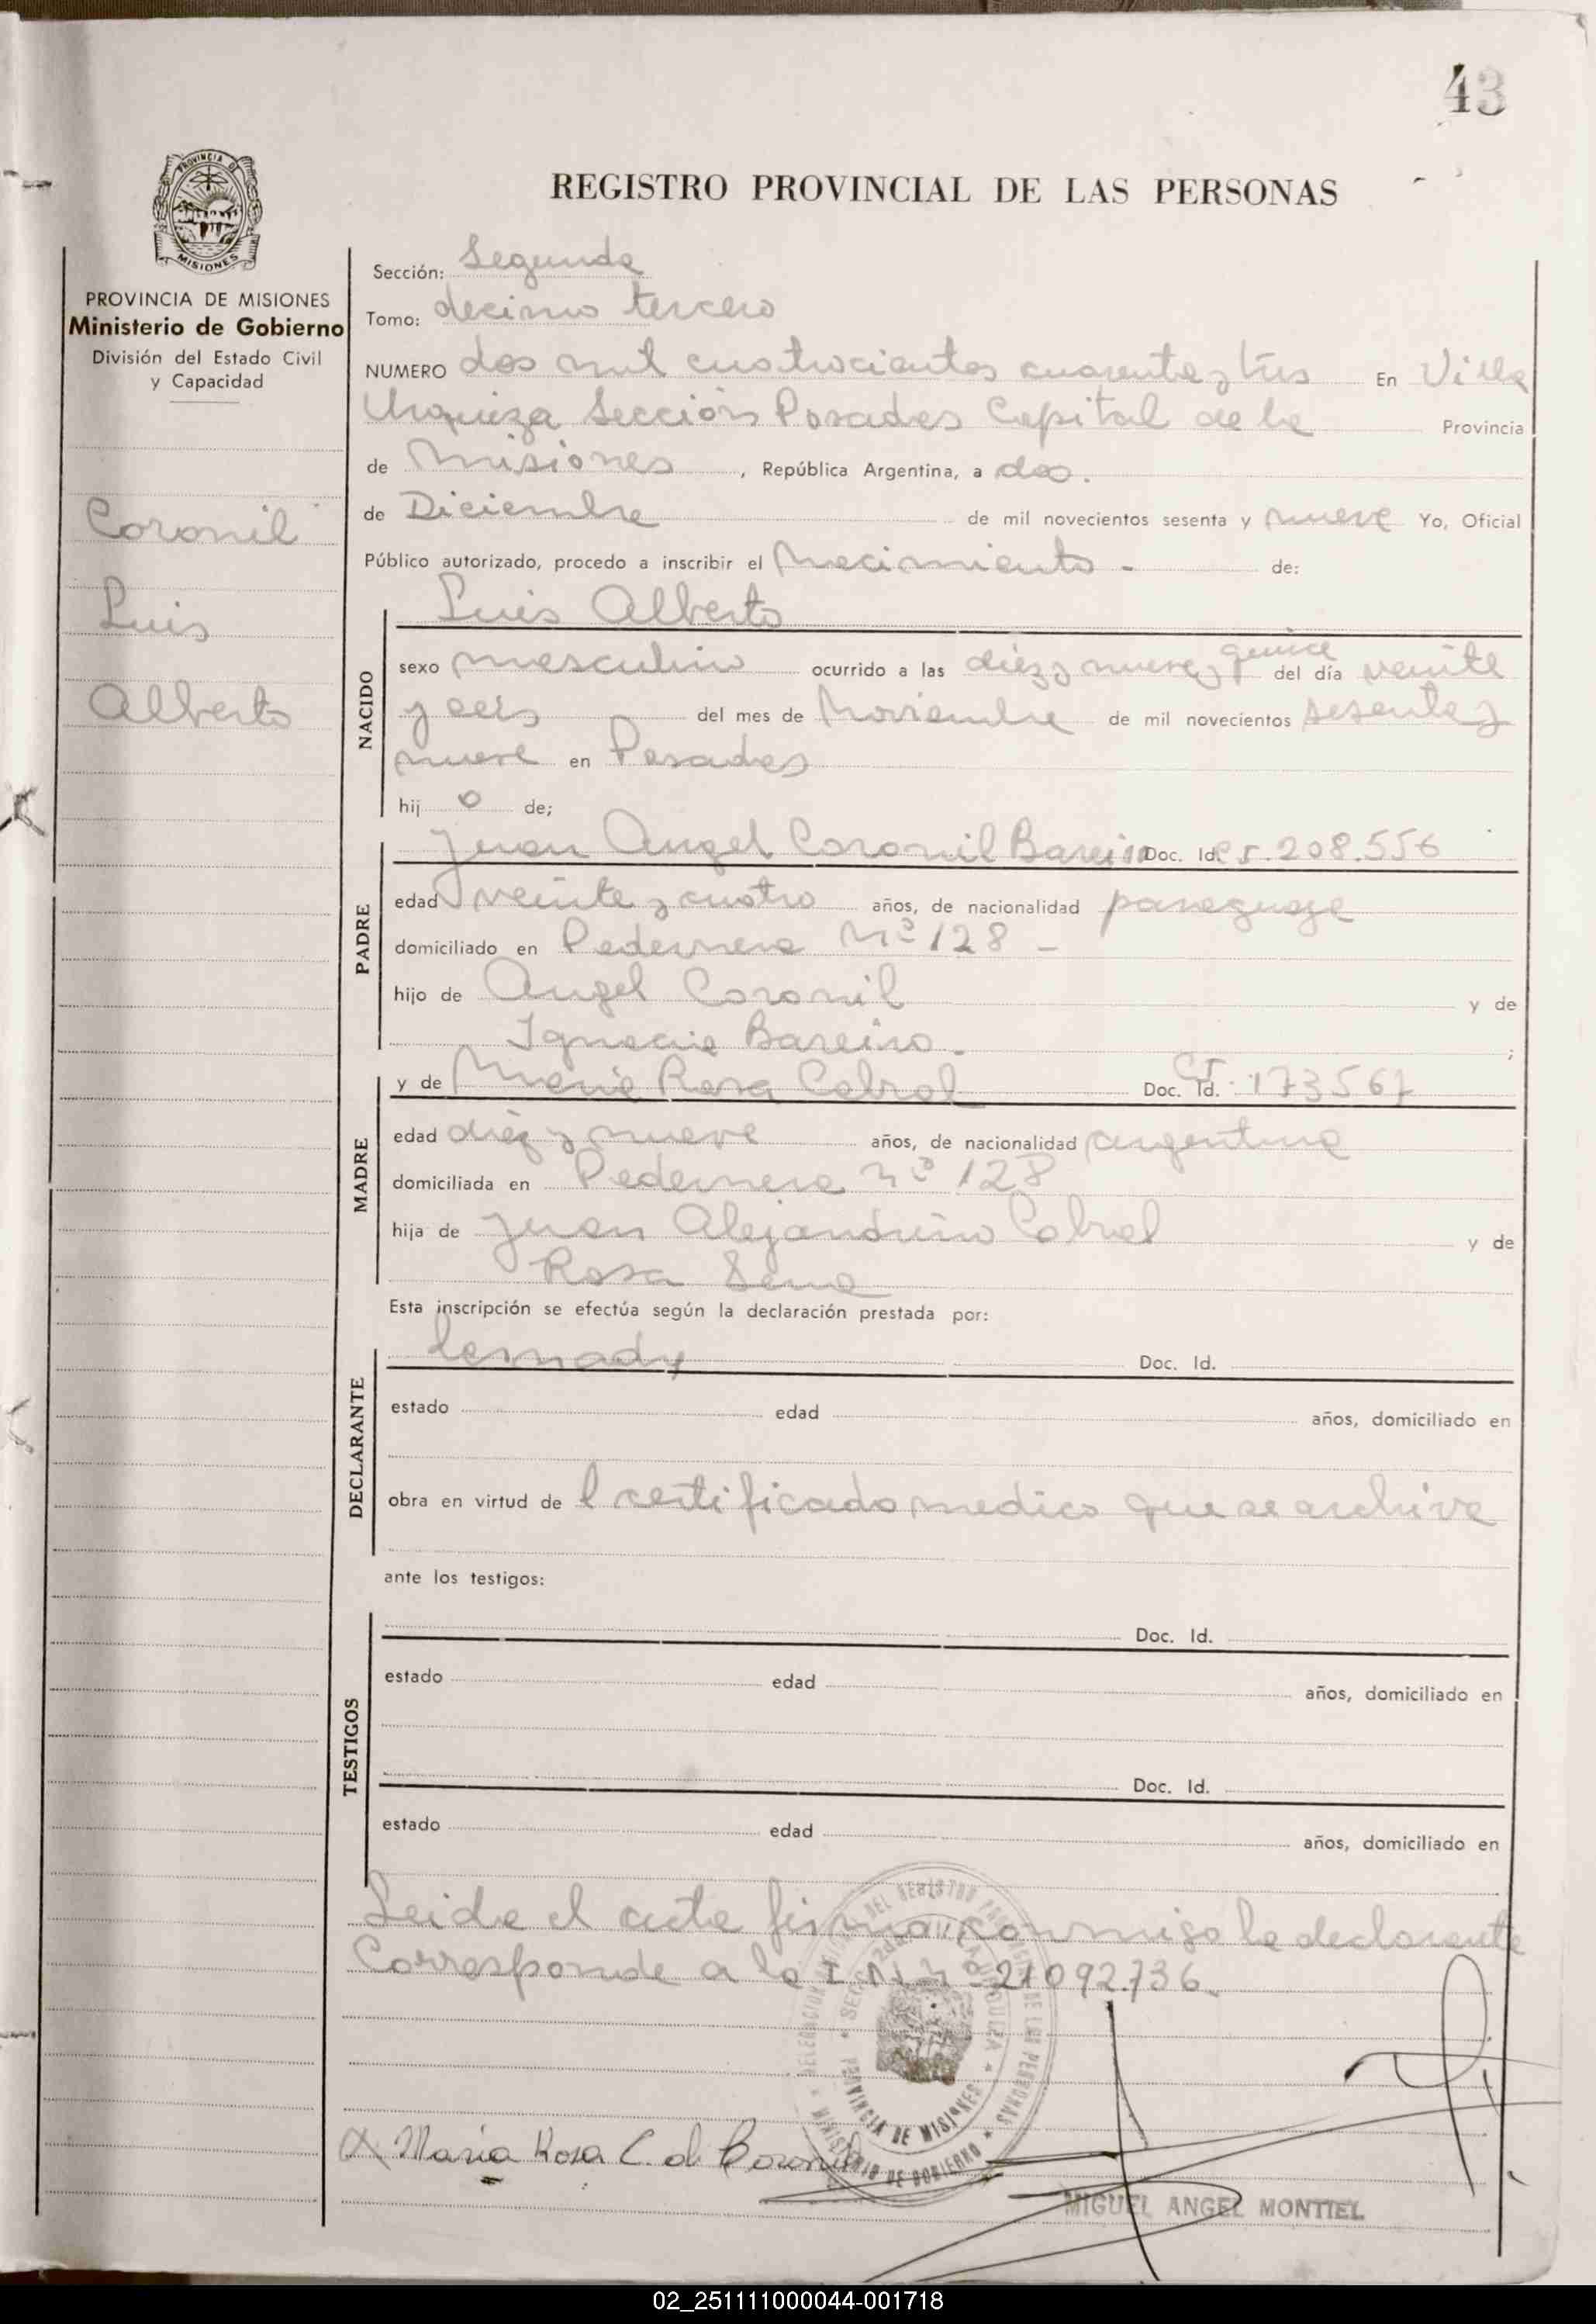 43
REGISTRO PROVINCIAL DE LAS PERSONAS
PROVINCIA DE MISIONES
Ministerio de Gobierno
División del Estado Civil
y Capacidad
Coronil
Luis
Alberto
Sección: Segunda
Tomo: decimo tercero
NUMERO dos mil cuatrocientos cuarenta y tres En Villa
Urquiza Sección Posadas Capital de la Provincia
de Misiones, República Argentina, a dos.
de Diciembre de mil novecientos sesenta y nueve Yo, Oficial
Público autorizado, procedo a inscribir el Nacimiento - de:
Luis Alberto
NACIDO
sexo masculino ocurrido a las diez y nueve y quince del día veinte
y seis del mes de Noviembre de mil novecientos sesenta y
nueve en Posadas
hijo de;
PADRE
Juan Angel Coronil Bareiro Doc. Id. 208.556
edad veinte y cuatro años, de nacionalidad paraguaya
domiciliado en Pedernera Nº 128 -
hijo de Angel Coronil y de
Ignacia Bareiro. ;
MADRE
y de Maria Rosa Cabral Doc. Id. 173567
edad diez y nueve años, de nacionalidad argentina
domiciliada en Pedernera nº 128
hija de Juan Alejandrino Cabral y de
Rosa Sena
Esta inscripción se efectúa según la declaración prestada por:
DECLARANTE
Doc. Id.
estado edad años, domiciliado en
obra en virtud de l certificado medico que se archiva
ante los testigos:
TESTIGOS
Doc. Id.
estado edad años, domiciliado en
Doc. Id.
estado edad años, domiciliado en
Leida el acta firma conmigo la declarante
Corresponde a la I.N. nº 21092.736
PROVINCIA DE MISIONES
MINISTERIO DE GOBIERNO
Maria Rosa C. de Coronil
MIGUEL ANGEL MONTIEL
02_251111000044-001718